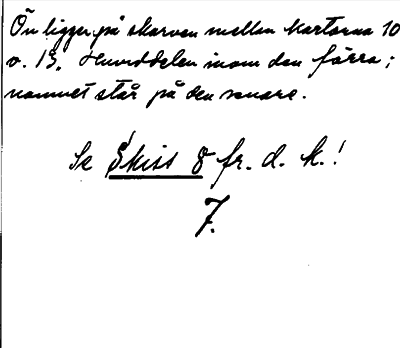 Ön ligger på skarven mellan kartorna 10
o. 13. Huvuddelen inom den förra;
namnet står på den senare.
Se Skiss 8 fr. d. k.!
7.